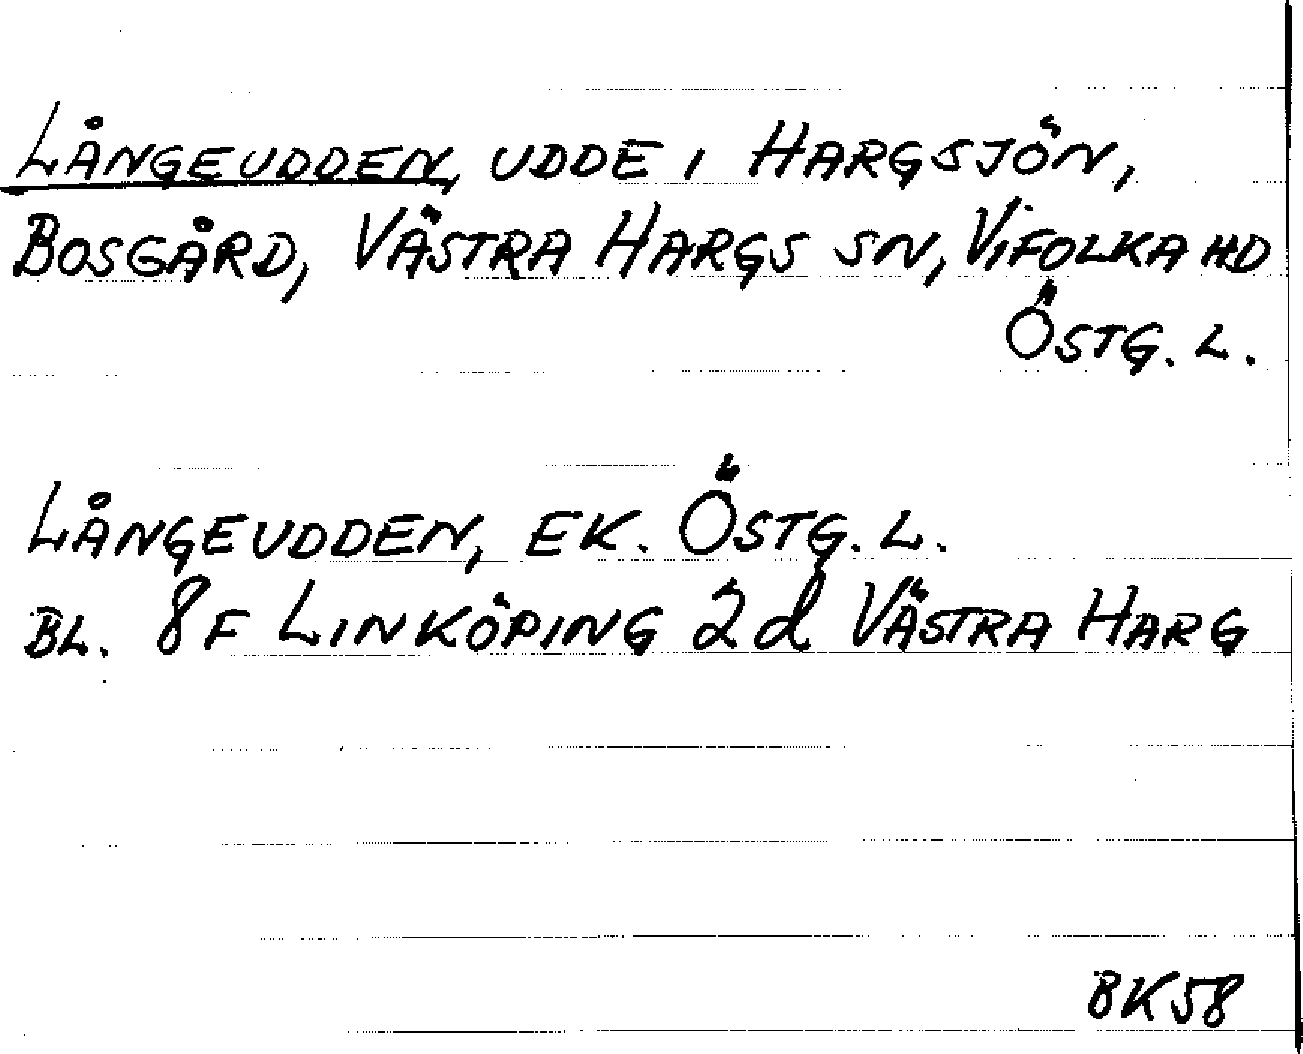 LÅNGEUDDEN, UDDE I HARGSJÖN,
BOSGÅRD, VÄSTRA HARGS SN, VIFOLKA HD
ÖSTG. L.
LÅNGEUDDEN, EK. ÖSTG. L.
BL. 8F LINKÖPING 2d VÄSTRA HARG
BK58